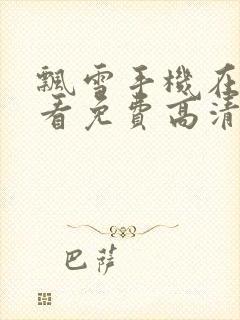 飄雪手機在
看免費高清
巴薩